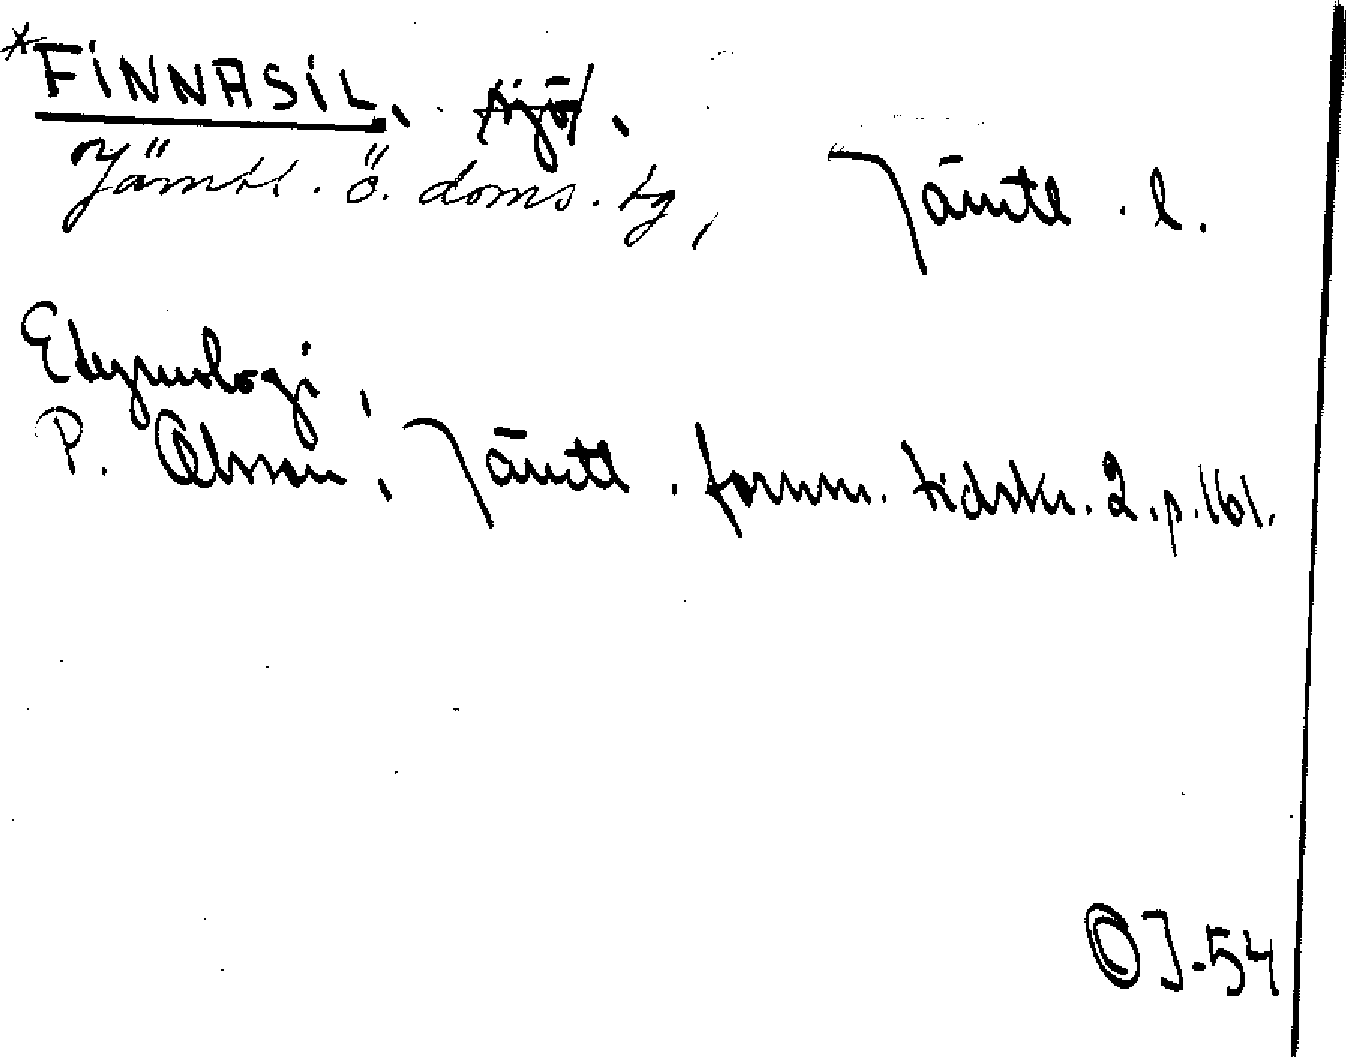 *FINNASIL, sjö,
Jämtl. ö. doms. tg, Jämtl. l.
Etymologi,
P. Olsson, Jämtl. fornm. tidskr. 2. p. 161.
OJ-54